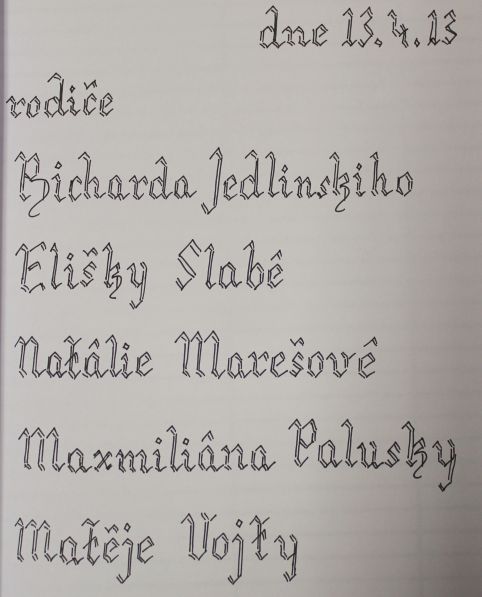 dne 13.4.13
rodiče
Richarda Jedlinského
Elišky Slabé
Natálie Marešové
Maxmiliána Palusky
Matěje Vojty